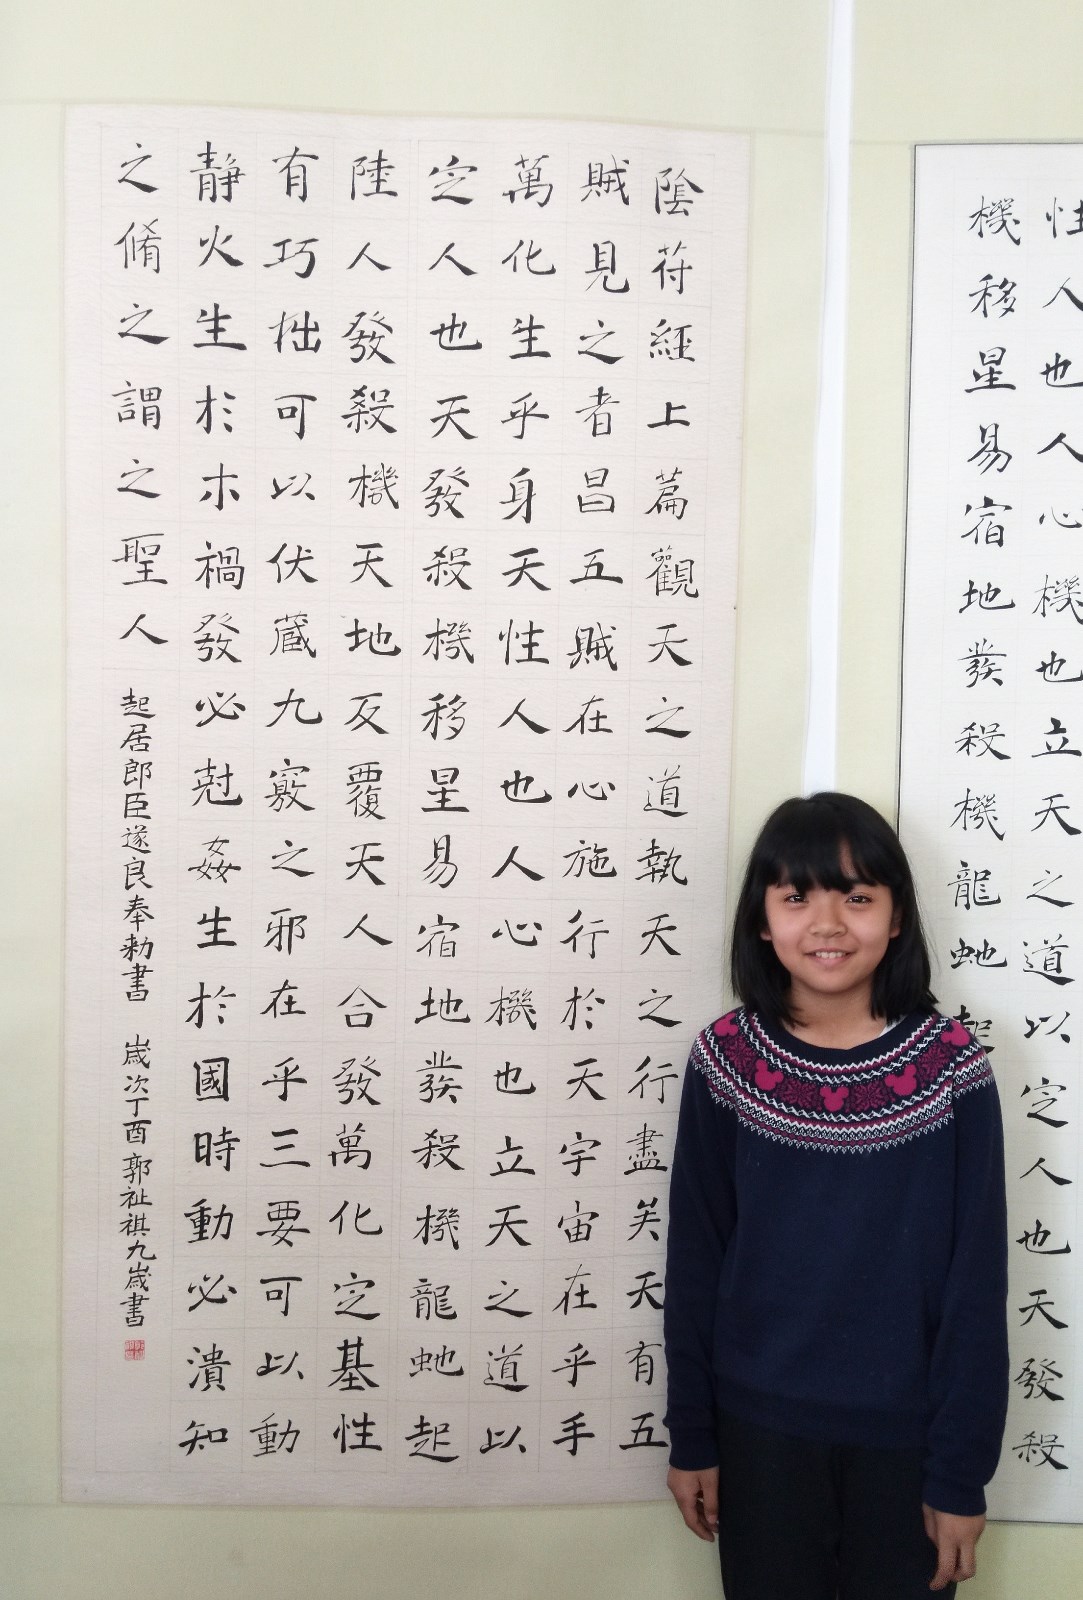 陰符經上篇觀天之道執天之行盡矣天有五
賊見之者昌五賊在心施行於天宇宙在乎手
萬化生乎身天性人也人心機也立天之道以
定人也天發殺機移星易宿地發殺機龍虵起
陸人發殺機天地反覆天人合發萬化定基性
有巧拙可以伏藏九竅之邪在乎三要可以動
靜火生於木禍發必尅姦生於國時動必潰知
之脩之謂之聖人
起居郎臣遂良奉勅書 歲次丁酉郭祉祺九歲書
性人也人心機也立天之道以定人也天發殺
機移星易宿地發殺機龍虵起